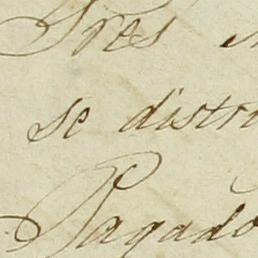 Tres
se distri
Pagado